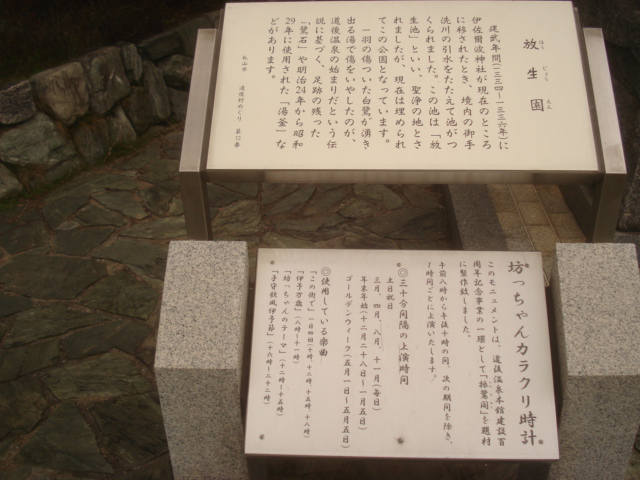 放生園
ほう じょう えん
建武年間(一三三四~一三三六年)に
伊佐爾波神社が現在のところ
に移されたとき、境内の御手
洗川の引水をたたえて池がつ
くられました。この池は「放
生池」といい、聖浄の地とさ
れましたが、現在は埋められ
てこの公園となっています。
一羽の傷ついた白鷺が湧き
出る湯で傷をいやしたのが、
道後温泉の始まりだという伝
説に基づく、足跡の残った
「鷺石」や明治24年から昭和
29年に使用された「湯釜」な
どがあります。
松山市 道後村めぐり 第12番
坊っちゃんカラクリ時計
このモニュメントは、道後温泉本館建設百
周年記念事業の一環として「振鷺閣」を題材
に製作致しました。
午前八時から午後十時の間、次の期間を除き、
1時間ごとに上演いたします。
◎三十分間隔の上演時間
土日祝日
三月、四月、八月、十一月(毎日)
年末年始(十二月二十八日~一月五日)
ゴールデンウィーク(五月一日~五月五日)
◎使用している楽曲
「この街で」一日四回(十時、十二時、十五時、十八時)
「伊予万歳」(八時~十一時)
「坊っちゃんのテーマ」(十二時~十五時)
「子守唄風伊予節」(十六時~二十二時)